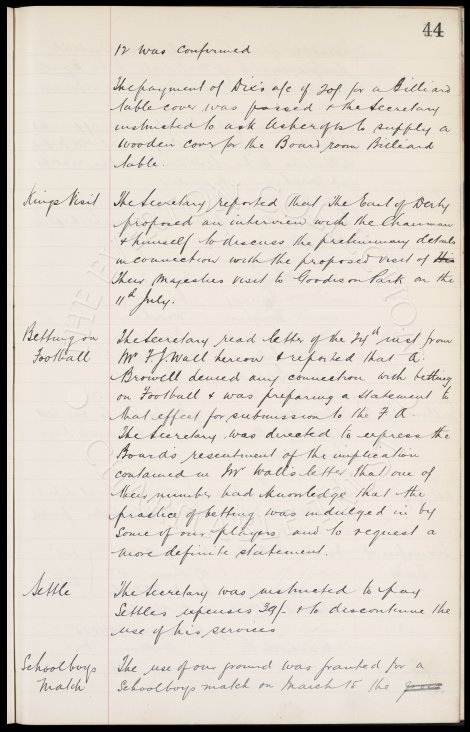 44
12 was confirmed
The payment of Dix's a/c of 20/- for a Billiard
table cover was passed & the Secretary
instructed to ask Ashcrofts to supply a
wooden cover for the Board room Billiard
table.
Kings Visit
The Secretary reported that The Earl of Derby
proposed an interview with the Chairman
& himself to discuss the preliminary details
in connection with the proposed visit of His
Their Majesties visit to Goodison Park on the
11th July.
Betting on
Football
The Secretary read letter of the 24th inst from
Mr F J Wall hereon & reported that A.
Browell denied any connection with betting
on Football & was preparing a statement to
that effect for submission to the F A.
The Secretary was directed to express the
Boards resentment of the implication
contained in Mr Wall's letter that one of
their number had knowledge that the
practice of betting was indulged in by
some of our players and to request a
more definite statement.
Settle
The Secretary was instructed to pay
Settles expenses 39/- & to discontinue the
use of his services
Schoolboys
Match
The use of our ground was granted for a
Schoolboys match on March 15 the